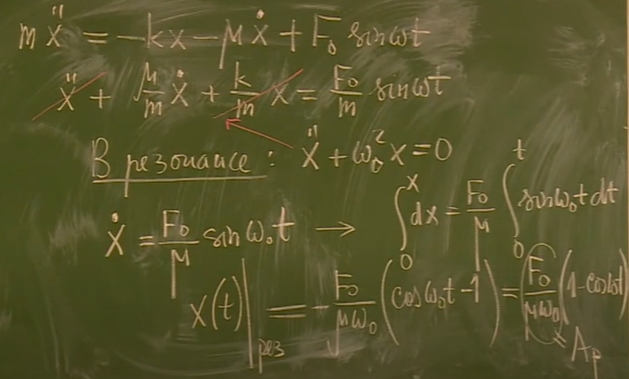 mẍ = −kx − μẋ + F₀ sinωt
ẍ + μ/m ẋ + k/m x = F₀/m sinωt
В резонансе: ẍ + ω₀²x = 0
ẋ = F₀/μ sinω₀t → ∫₀ˣ dx = F₀/μ ∫₀ᵗ sinω₀t dt
x(t)|рез = −F₀/μω₀ (cosω₀t − 1) = F₀/μω₀ (1 − cosωt)
= Aр